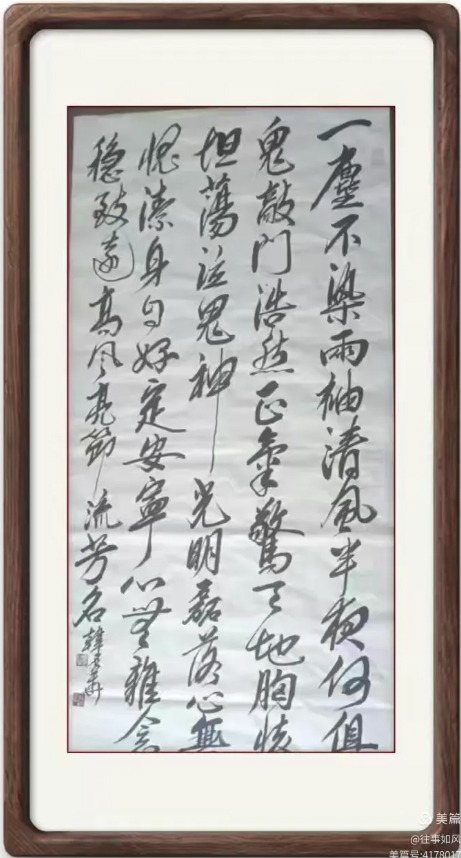 一塵不染兩袖清風半夜何俱
鬼敲門浩然正氣驚天地胸懷
坦蕩泣鬼神光明磊落心無
愧潔身自好定安寧心無雜念
穩致遠高風亮節流芳名
美篇
@往事如风
美篇号:417801